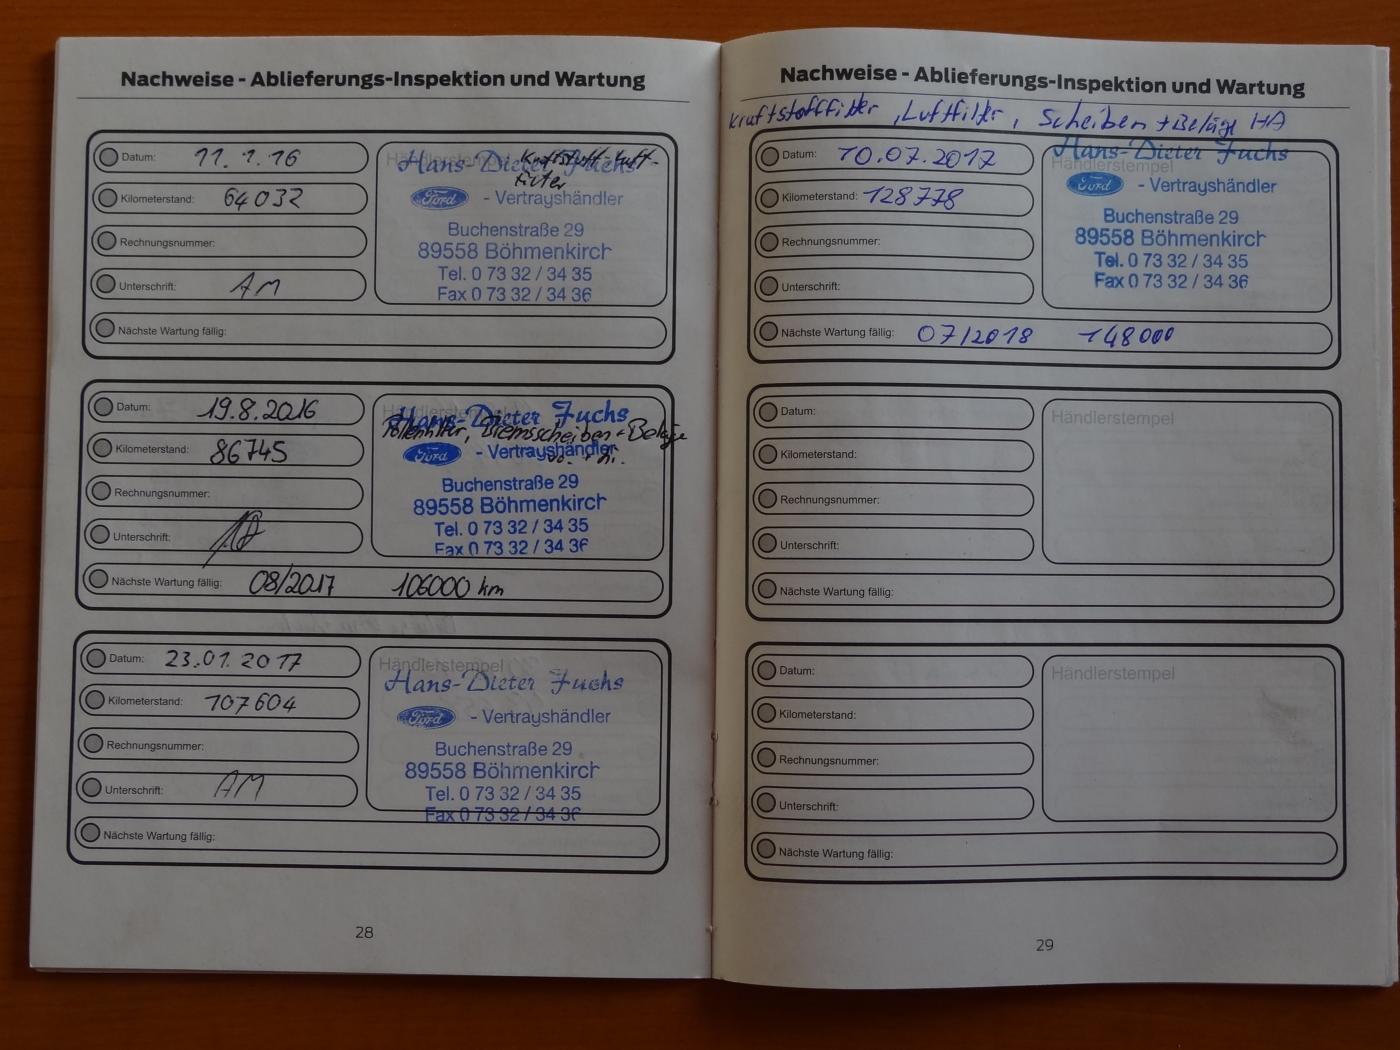 Nachweise - Ablieferungs-Inspektion und Wartung
Datum: 11.1.16
Kilometerstand: 64032
Rechnungsnummer:
Unterschrift: AM
Nächste Wartung fällig:
Händlerstempel
Kraftstoff-Luft-
filter
Hans-Dieter Fuchs
Ford - Vertrayshändler
Buchenstraße 29
89558 Böhmenkirch
Tel. 0 73 32 / 34 35
Fax 0 73 32 / 34 36
Datum: 19.8.2016
Kilometerstand: 86745
Rechnungsnummer:
Unterschrift:
Nächste Wartung fällig: 08/2017 106000 km
Händlerstempel
Hans-Dieter Fuchs
Pollenfilter, Bremsscheiben + Beläge
vo. + hi.
Ford - Vertrayshändler
Buchenstraße 29
89558 Böhmenkirch
Tel. 0 73 32 / 34 35
Fax 0 73 32 / 34 36
Datum: 23.01.2017
Kilometerstand: 107604
Rechnungsnummer:
Unterschrift: AM
Nächste Wartung fällig:
Händlerstempel
Hans-Dieter Fuchs
Ford - Vertrayshändler
Buchenstraße 29
89558 Böhmenkirch
Tel. 0 73 32 / 34 35
Fax 0 73 32 / 34 36
28
Nachweise - Ablieferungs-Inspektion und Wartung
Kraftstofffilter, Luftfilter, Scheiben + Beläge HA
Datum: 10.07.2017
Kilometerstand: 128778
Rechnungsnummer:
Unterschrift:
Nächste Wartung fällig: 07/2018 148000
Hans-Dieter Fuchs
Händlerstempel
Ford - Vertrayshändler
Buchenstraße 29
89558 Böhmenkirch
Tel. 0 73 32 / 34 35
Fax 0 73 32 / 34 36
Datum:
Kilometerstand:
Rechnungsnummer:
Unterschrift:
Nächste Wartung fällig:
Händlerstempel
Datum:
Kilometerstand:
Rechnungsnummer:
Unterschrift:
Nächste Wartung fällig:
Händlerstempel
29